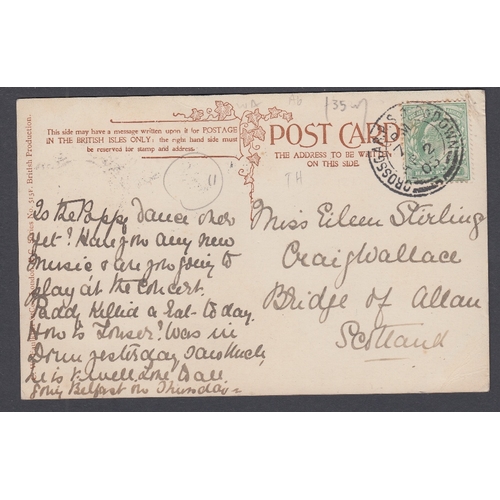 This side may have a message written upon it for POSTAGE
IN THE BRITISH ISLES ONLY; the right hand side must
be reserved for stamp and address.
POST CARD
THE ADDRESS TO BE
ON THIS SIDE.
Is the Poppy dance over
yet? Have you any new
Music & are you going to
play at the Concert.
Paddy Killed a Rat to-day.
How is Towser? Was in
Down yesterday saw
he is v. well. Love to all
Going Belfast on Thursday =
Miss Eileen Stirling
Craig Wallace
Bridge of Allan
Scotland
British Production.
TH
11